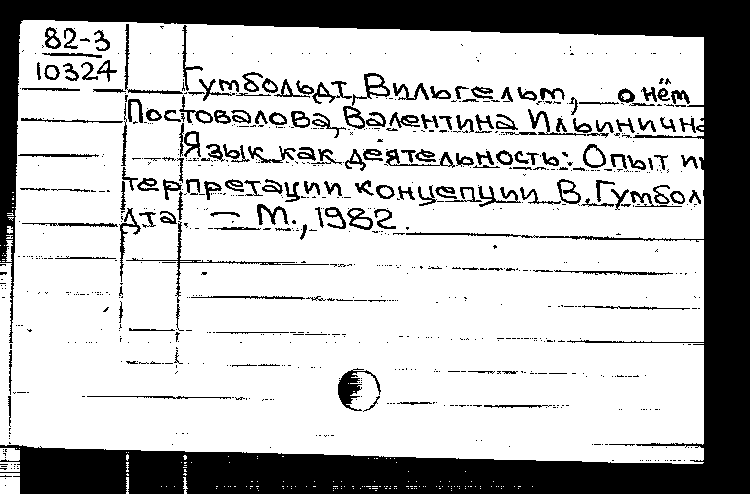 82-3
10324
Гумбольдт, Вильгельм, о нём
Постовалова, Валентина Ильинична
Язык как деятельность: Опыт ин
терпретации концепции В. Гумбол
дта. — М., 1982.